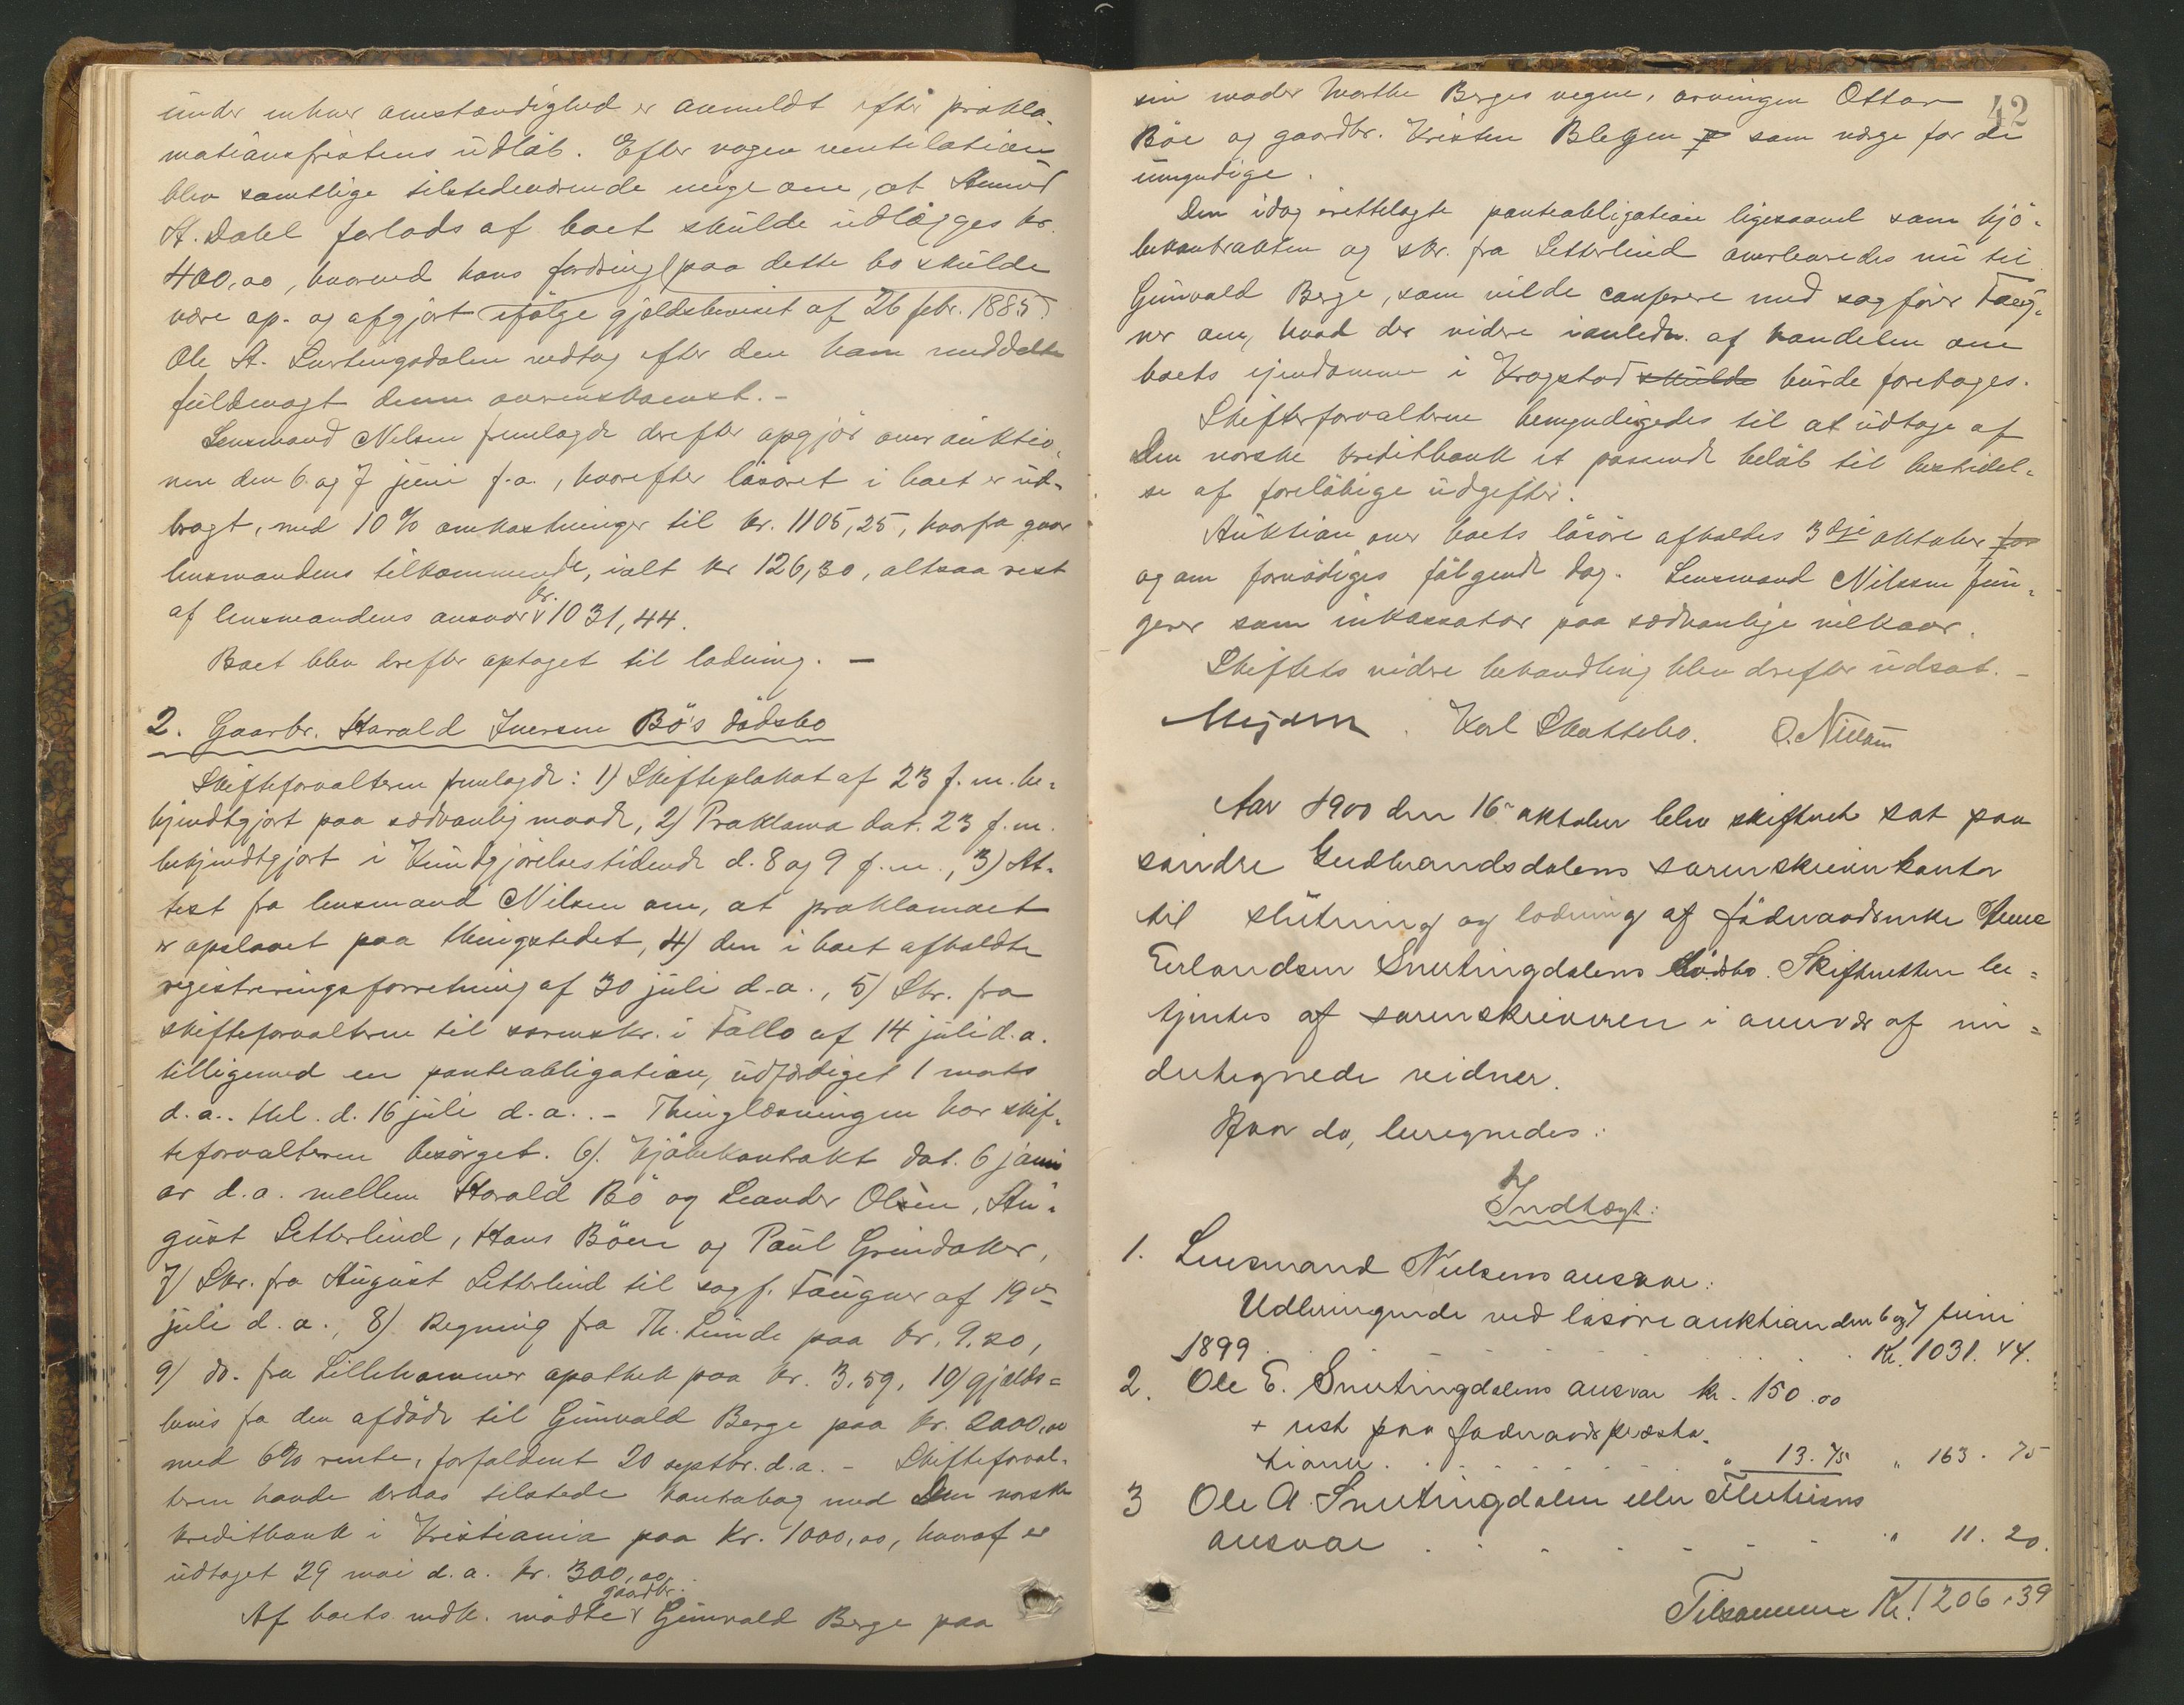 under enhver omstændighed er anmeldt efter prokla-
mationsfristens udløb. Efter nogen ventilation
blev samtlige tilstedeværende enige om, at Amund
A. Dahl forlods af boet skulde udlægges kr.
400,00, hvormed hans fordring (paa dette bo skulde
være op- og afgjort ifølge gjeldsbeviset af 26 febr. 1885).
Ole A. Snertingdalen vedtog efter den ham meddelte
fuldmagt denne overenskomst. –
Lensmand Nilsen fremlagde derefter opgjør over auktio-
nen den 6. og 7 juni f.a., hvorefter løsøret i boet er ud-
bragt, med 10 % omkostninger til kr. 1105,25, hvorfra gaar
lensmandens tilkommende, ialt kr 126,30, altsaa rest
af lensmandens ansvar kr. 1031,44.
Boet blev derefter optaget til lodning. –
2. Gaarbr. Harald Iversen Bø's dødsbo
Skifteforvalteren fremlagde: 1) Skifteplakat af 23 f.m. be-
kjendtgjort paa sædvanlig maade, 2) Proklama dat. 23 f.m.
bekjendtgjort i Kundgjørelsestidende d. 8 og 9 f.m., 3) At-
test fra lensmand Nilsen om, at proklamaet
er opslaaet paa thingstedet, 4) den i boet afholdte
registreringsforretning af 30 juli d.a., 5) Skr. fra
skifteforvalteren til sorenskr. i Follo af 14 juli d.a.
tilligemed en panteobligation, udfærdiget 1 marts
d.a.. thl. d. 16 juli d.a.. – Thinglæsningen har skif-
teforvalteren besørget. 6). Kjøbekontrakt dat. 6 janu
ar d.a. mellem Harald Bø og Leander Olsen, Au-
gust Setterlind, Hans Böen og Paul Grindaker,
7) Skr. fra August Setterlind til sagf. Taugner af 19de
juli d.a., 8) Regning fra Th. Lunde paa kr. 9.20,
9) do. fra Lillehammer apothek paa kr. 3,59, 10) gjælds-
bevis fra den afdøde til Gunvald Berge paa kr. 2000,00
med 6% rente, forfaldent 20 septbr. d.a. – Skifteforval-
teren havde derhos tilstede kontrabog med Den norske
kreditbank i Kristiania paa kr. 1000,00, hvoraf er
udtaget 29 mai d.a. kr. 300,00.
Af boets vedk. mødte gaardbr. Gunvald Berge paa
42
sin moder Marthe Berges vegne, arvingen Ottar
Böe og gaardbr. Kristen Blegen som værge for de
umyndige.
Den idag irettelagte panteobligation ligesaavel som kjø-
bekontrakten og skr. fra Setterlind overleveredes nu til
Gunvald Berge, som vilde conferere med sagfører Taug-
ner om, hvad der videre i anledn. af handelen om
boets eiendomme i Krogstad skulde burde foretages.
Skifteforvalteren bemyndigedes til at udtage af
Den norske kreditbank et passende beløb til bestridel-
se af foreløbige udgifter.
Auktion over boets løsøre afholdes 3dje oktober for
og om fornødiges følgende dag. Lensmand Nilsen fun-
gerer som inkassator paa sædvanlige vilkaar.
Skiftets videre behandling blev derefter udsat. –
Mejdem. Karl Skattebo. O. Nielsen
Aar 1900 den 16 oktober blev skifteret sat paa
søndre Gudbrandsdalens sorenskriverkontor
til slutning og lodning af føderaadsenke Anne
Erlandsen Snertingdalens dødsbo. Skifteretten be-
tjentes af sorenskriveren i overvær af un-
dertegnede vidner.
Hvor da, beregnedes:
Indtægt:
1. Lensmand Nielsens ansvar:
Udbringende ved løsøreauktion den 6 og 7 Juni
1899 . . . . . . Kr. 1031. 44.
2. Ole E. Snertingdalens ansvar kr. 150.00
+ rest paa føderaadspræsta-
tionen . . . . . . " 13.75 " 163. 75
3 Ole A. Snertingdalen eller
ansvar . . . . . . " 11. 20.
Tilsammen Kr. 1206.39